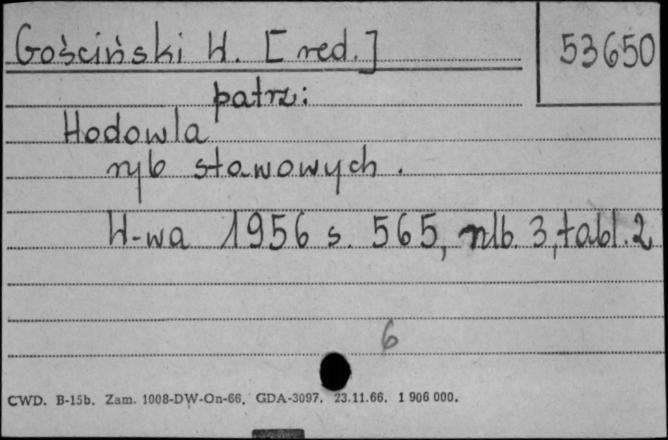 Gościński W. [red.]
53650
patrz:
Hodowla
ryb stawowych.
W-wa 1956 s. 565, nlb. 3, tabl. 2
6
CWD. B-15b. Zam. 1008-DW-On-66. GDA-3097. 23.11.66. 1 906 000.